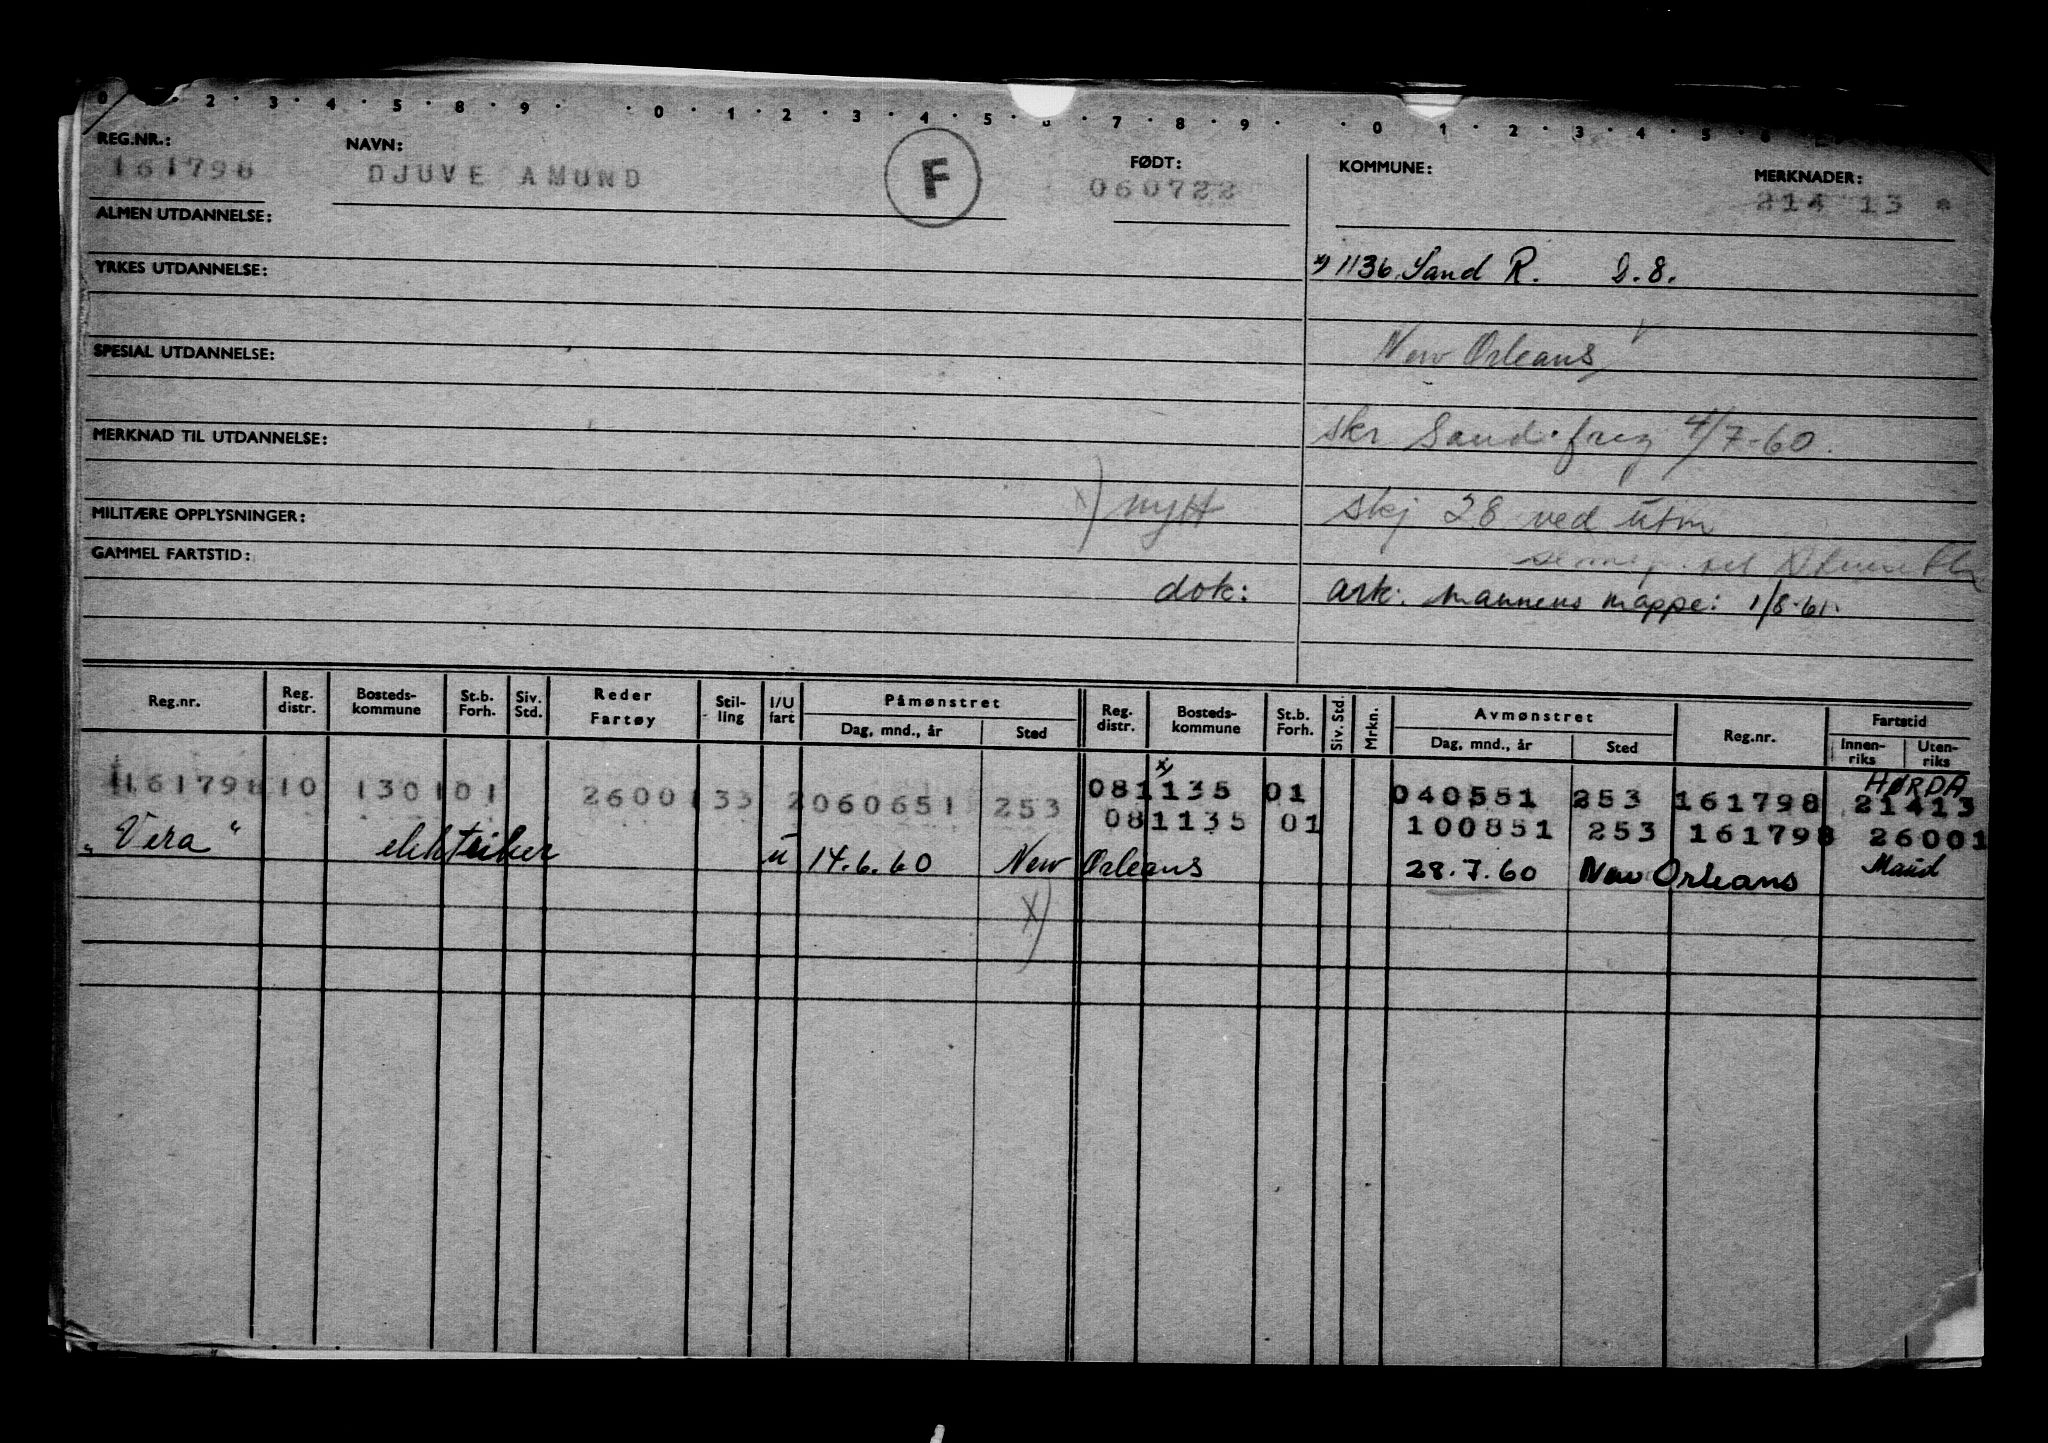 0 · 2 · 3 · 4 · 5 · 8 · 9 · · 0 · 1 · 2 · 3 · 4 · 5 · 6 · 7 · 8 · 9 · · 0 1 · 2 · 3 · 4 · 5 · 6
REG.NR.: NAVN: FØDT: KOMMUNE: MERKNADER:
161798 DJUVE AMUND F 060722 214 13 *
ALMEN UTDANNELSE:
YRKES UTDANNELSE: x) 1136. Sand R. D.8.
SPESIAL UTDANNELSE: New Orleans
MERKNAD TIL UTDANNELSE: skr Sand. freg 4/7-60.
MILITÆRE OPPLYSNINGER: x) nytt skj 28 ved utm
GAMMEL FARTSTID:
dok: ark. mannens mappe: 1/8-61.
Reg.nr. Reg. distr. Bosteds-kommune St.b. Forh. Siv. Std. Reder Fartøy Stil-ling I/U fart Påmønstret Dag, mnd., år Sted Reg. distr. Bosteds-kommune St.b. Forh. Siv. Std. Mrkn. Avmønstret Dag, mnd., år Sted Reg.nr. Fartstid Innen-riks Uten-riks
x) HØRDA
161798 10 1301 01 2600 133 2 060651 253 081135 01 040551 253 161798 21413
081135 01 100851 253 161798 26001
"Vera" elektriker u 14.6.60 New Orleans 28.7.60 New Orleans Maud
x)